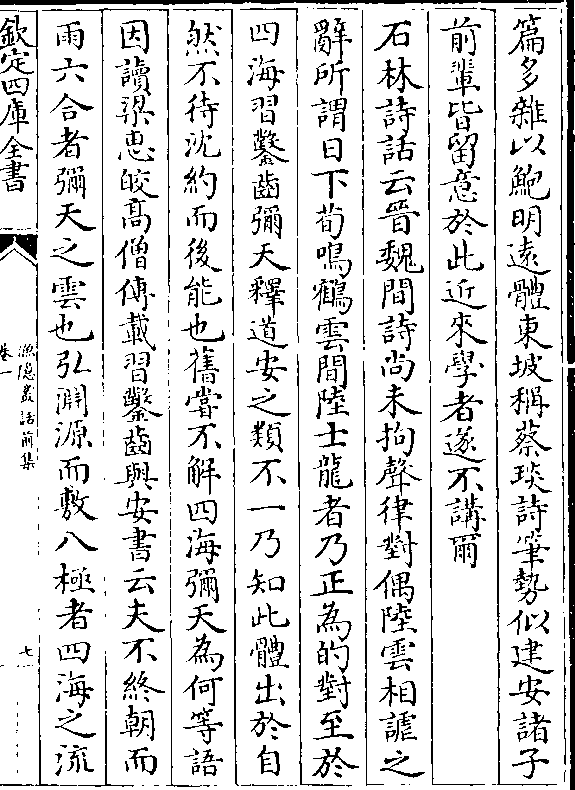 篇多雜以鮑明遠體東坡稱蔡琰詩筆勢似建安諸子
前輩皆留意於此近來學者遂不講爾
石林詩話云晉魏間詩尚未拘聲律對偶陸雲相謔之
辭所謂日下荀鳴鶴雲間陸士龍者乃正為的對至於
四海習鑿齒彌天釋道安之類不一乃知此體出於自
然不待沈約而後能也舊嘗不解四海彌天為何等語
因讀梁惠皎高僧傳載習鑿齒與安書云夫不終朝而
雨六合者彌天之雲也弘淵源而敷八極者四海之流
欽定四庫全書
漁隱叢話前集
卷一
七